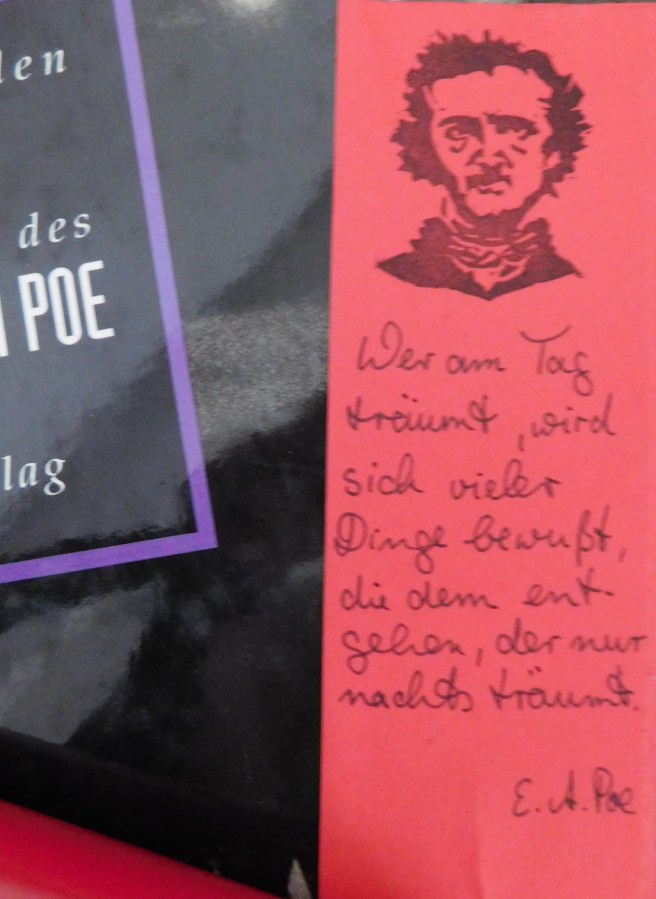 len
des
POE
lag
Wer am Tag
träumt, wird
sich vieler
Dinge bewußt,
die dem ent-
gehen, der nur
nachts träumt.
E. A. Poe